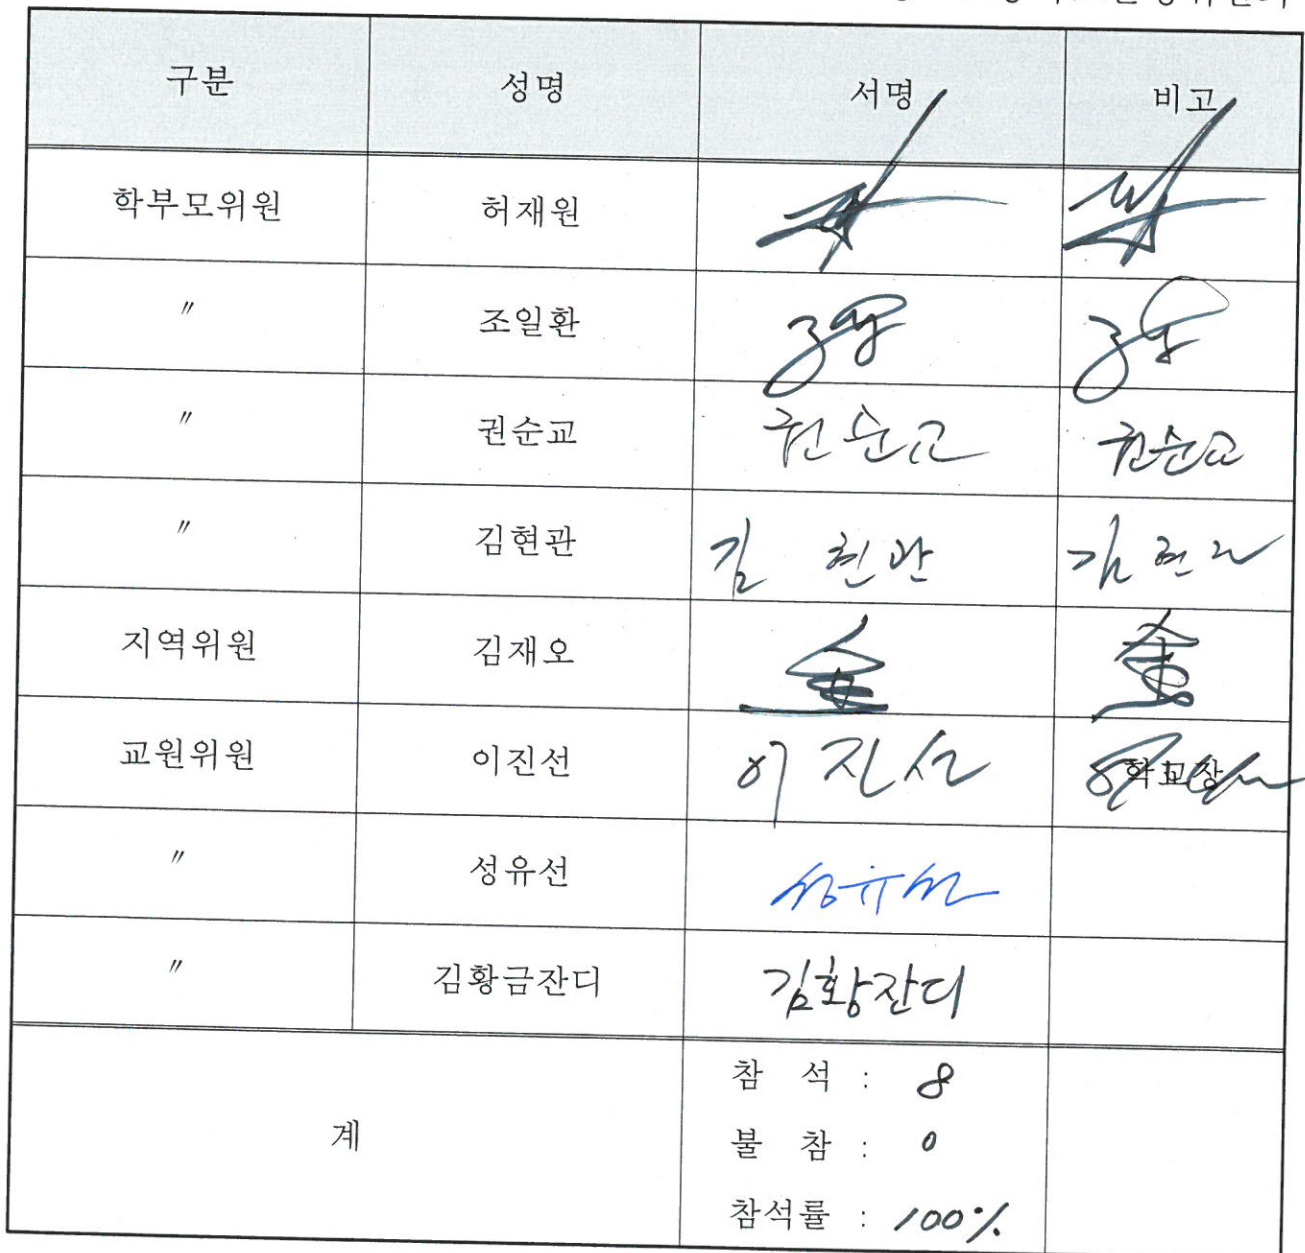 구분 성명 서명 비고
학부모위원 허재원
〃 조일환
〃 권순교 권순교 권순교
〃 김현관 김 현관 김현관
지역위원 김재오
교원위원 이진선 이진선 학교장
〃 성유선 성유선
〃 김황금잔디 김황잔디
계
참 석 : 8
불 참 : 0
참석률 : 100%